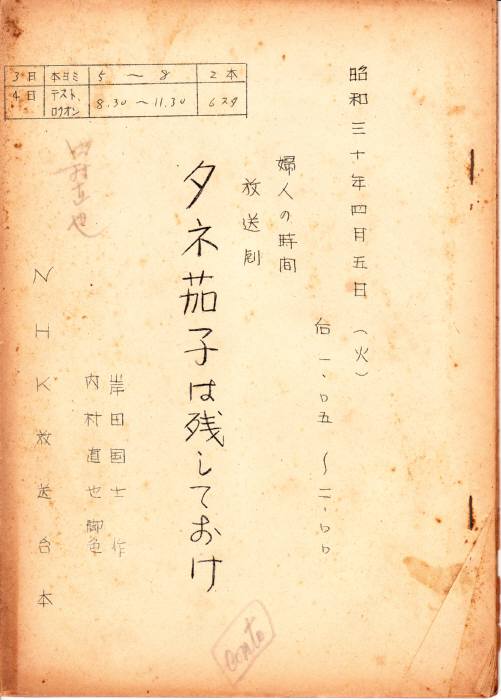 3日 本ヨミ 5～8 2本
4日 テスト、ロクオン 8.30～11.30 6スタ
昭和三十年四月五日（火）
后一、〇五～二、〇〇
婦人の時間
放送劇
タネ茄子は残しておけ
岸田国士 作
内村直也 脚色
NHK放送台本
conte